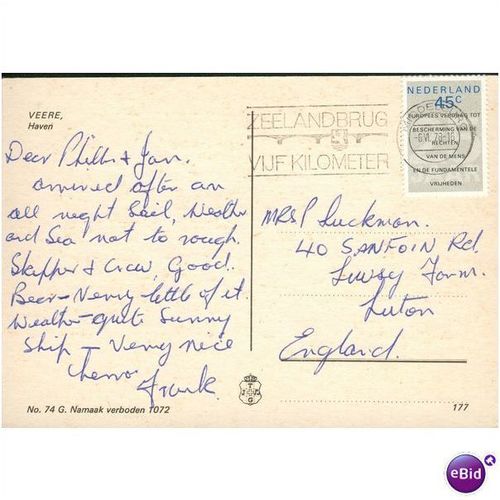 VEERE,
Haven
Dear Phill & Jan.
arrived after an
all neght Seil, Weather
and Sea not to rough.
Skepper & Crew, Good.
Beer - Verry little of it.
Weather - quite Sunny
Ship - Verry nice
Cheers
Frank.
No. 74 G. Namaak verboden 1072
ZEELANDBRUG
VIJF KILOMETER
6.VI.79-18
NEDERLAND
45c
EUROPEES VERDRAG TOT
BESCHERMING VAN DE
RECHTEN
VAN DE MENS
EN DE FUNDAMENTELE
VRIJHEDEN
MRS P Luckman.
40 SANFOIN Rd.
Lewsey Farm.
Luton
England.
T
G
177
eBid